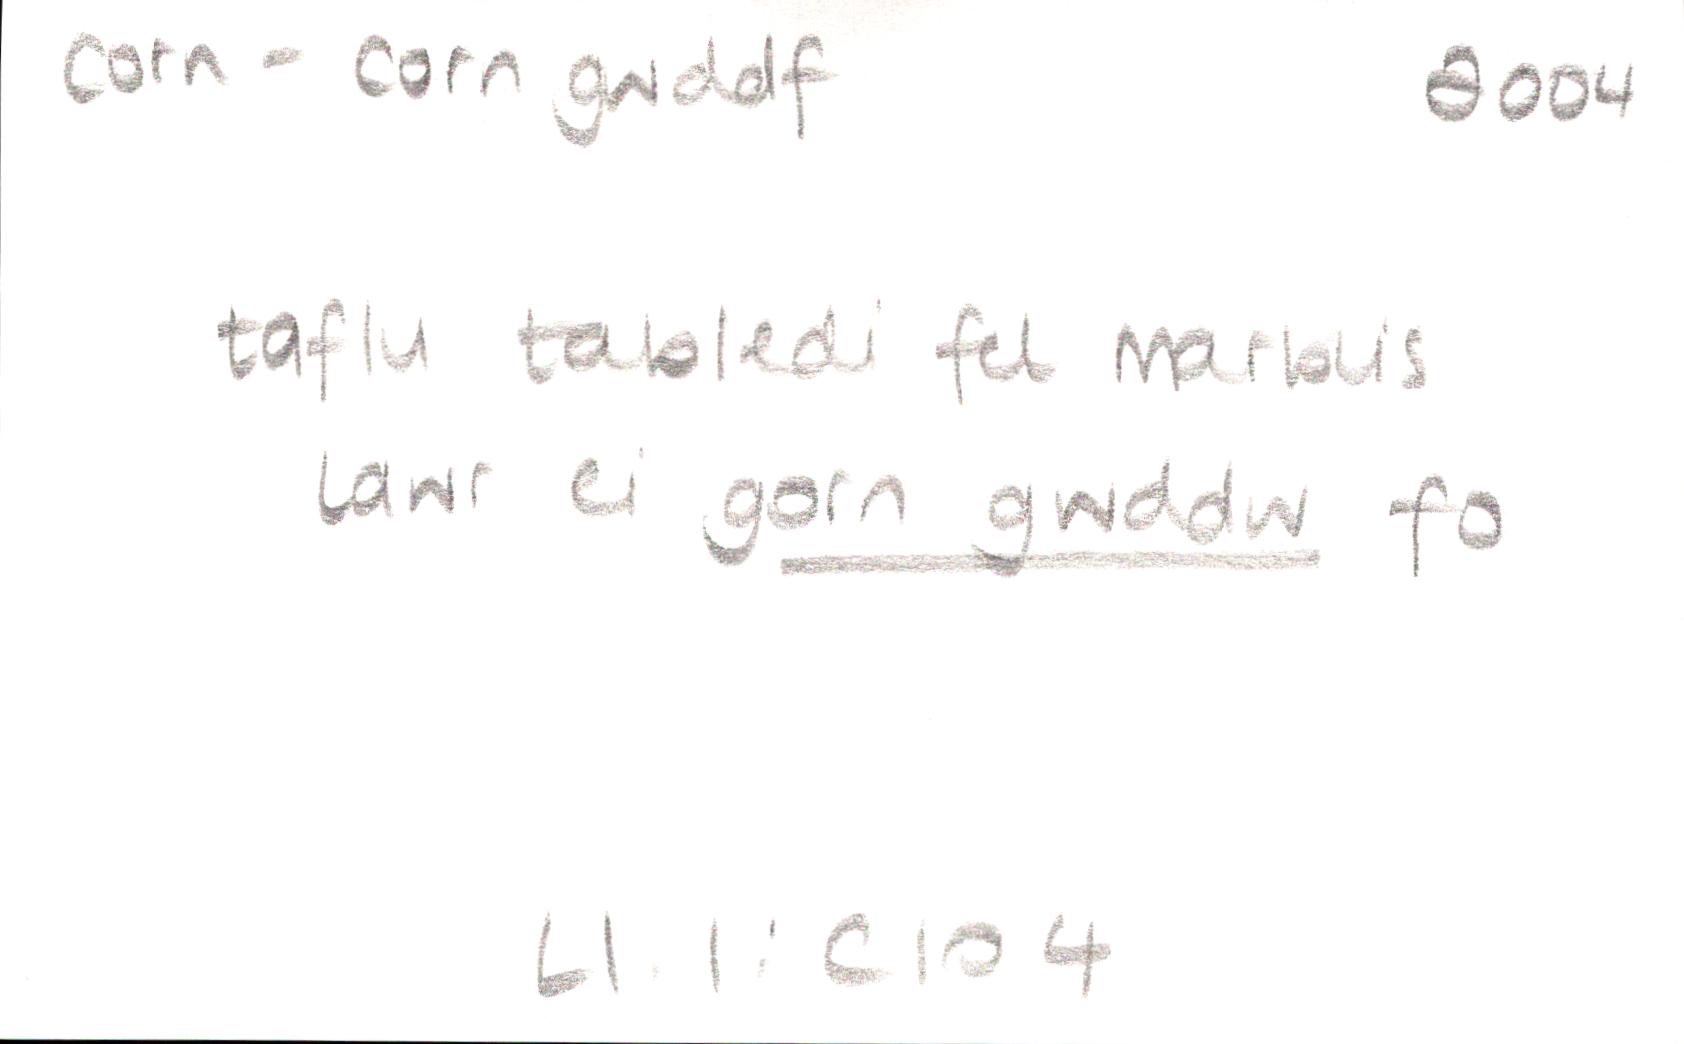 corn - corn gwddf 2004
taflu tabledi fel marblis
lawr ei gorn gwddw fo
Ll.1: C104